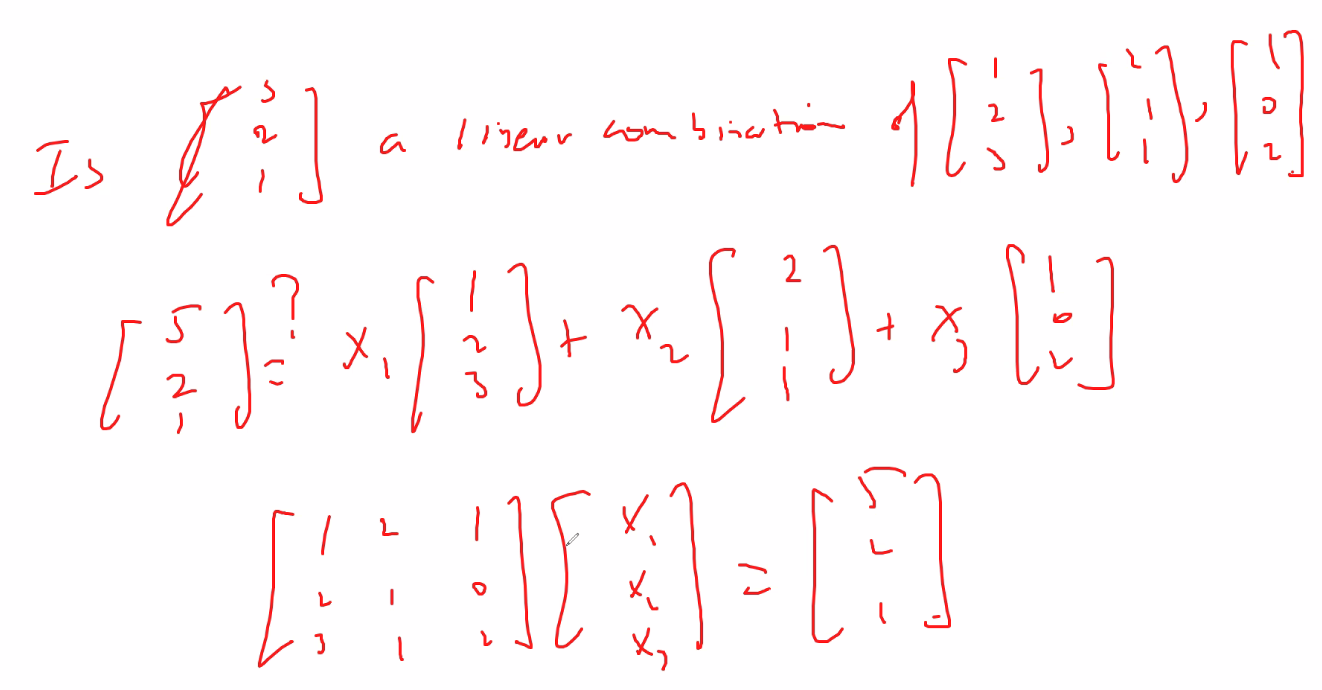 Is [5 2 1] a linear combination of [1 2 3], [2 1 1], [1 0 2]
[5 2 1] =? x₁ [1 2 3] + x₂ [2 1 1] + x₃ [1 0 2]
[1 2 1; 2 1 0; 3 1 2] [x₁ x₂ x₃] = [5 2 1]